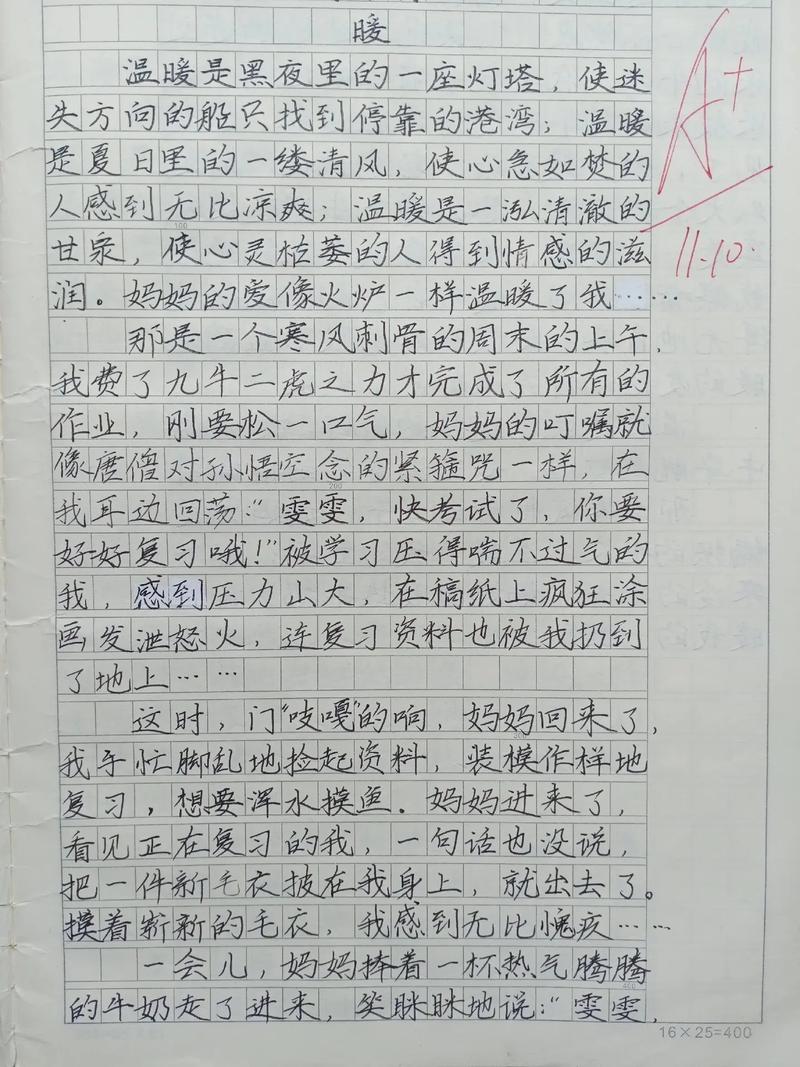 暖
温暖是黑夜里的一座灯塔，使迷
失方向的船只找到停靠的港湾；温暖
是夏日里的一缕清风，使心急如焚的
人感到无比凉爽；温暖是一泓清澈的
甘泉，使心灵枯萎的人得到情感的滋
润。妈妈的爱像火炉一样温暖了我……
那是一个寒风刺骨的周末的上午，
我费了九牛二虎之力才完成了所有的
作业，刚要松一口气，妈妈的叮嘱就
像唐僧对孙悟空念的紧箍咒一样，在
我耳边回荡：“雯雯，快考试了，你要
好好复习哦！”被学习压得喘不过气的
我，感到压力山大，在稿纸上疯狂涂
画发泄怒火，连复习资料也被我扔到
了地上……
这时，门“吱嘎”的响，妈妈回来了，
我手忙脚乱地捡起资料，装模作样地
复习，想要浑水摸鱼．妈妈进来了，
看见正在复习的我，一句话也没说，
把一件新毛衣披在我身上，就出去了。
摸着崭新的毛衣，我感到无比愧疚……
一会儿，妈妈捧着一杯热气腾腾
的牛奶走了进来，笑眯眯地说：“雯雯，
A+
11.10.
100
200
300
400
16×25=400